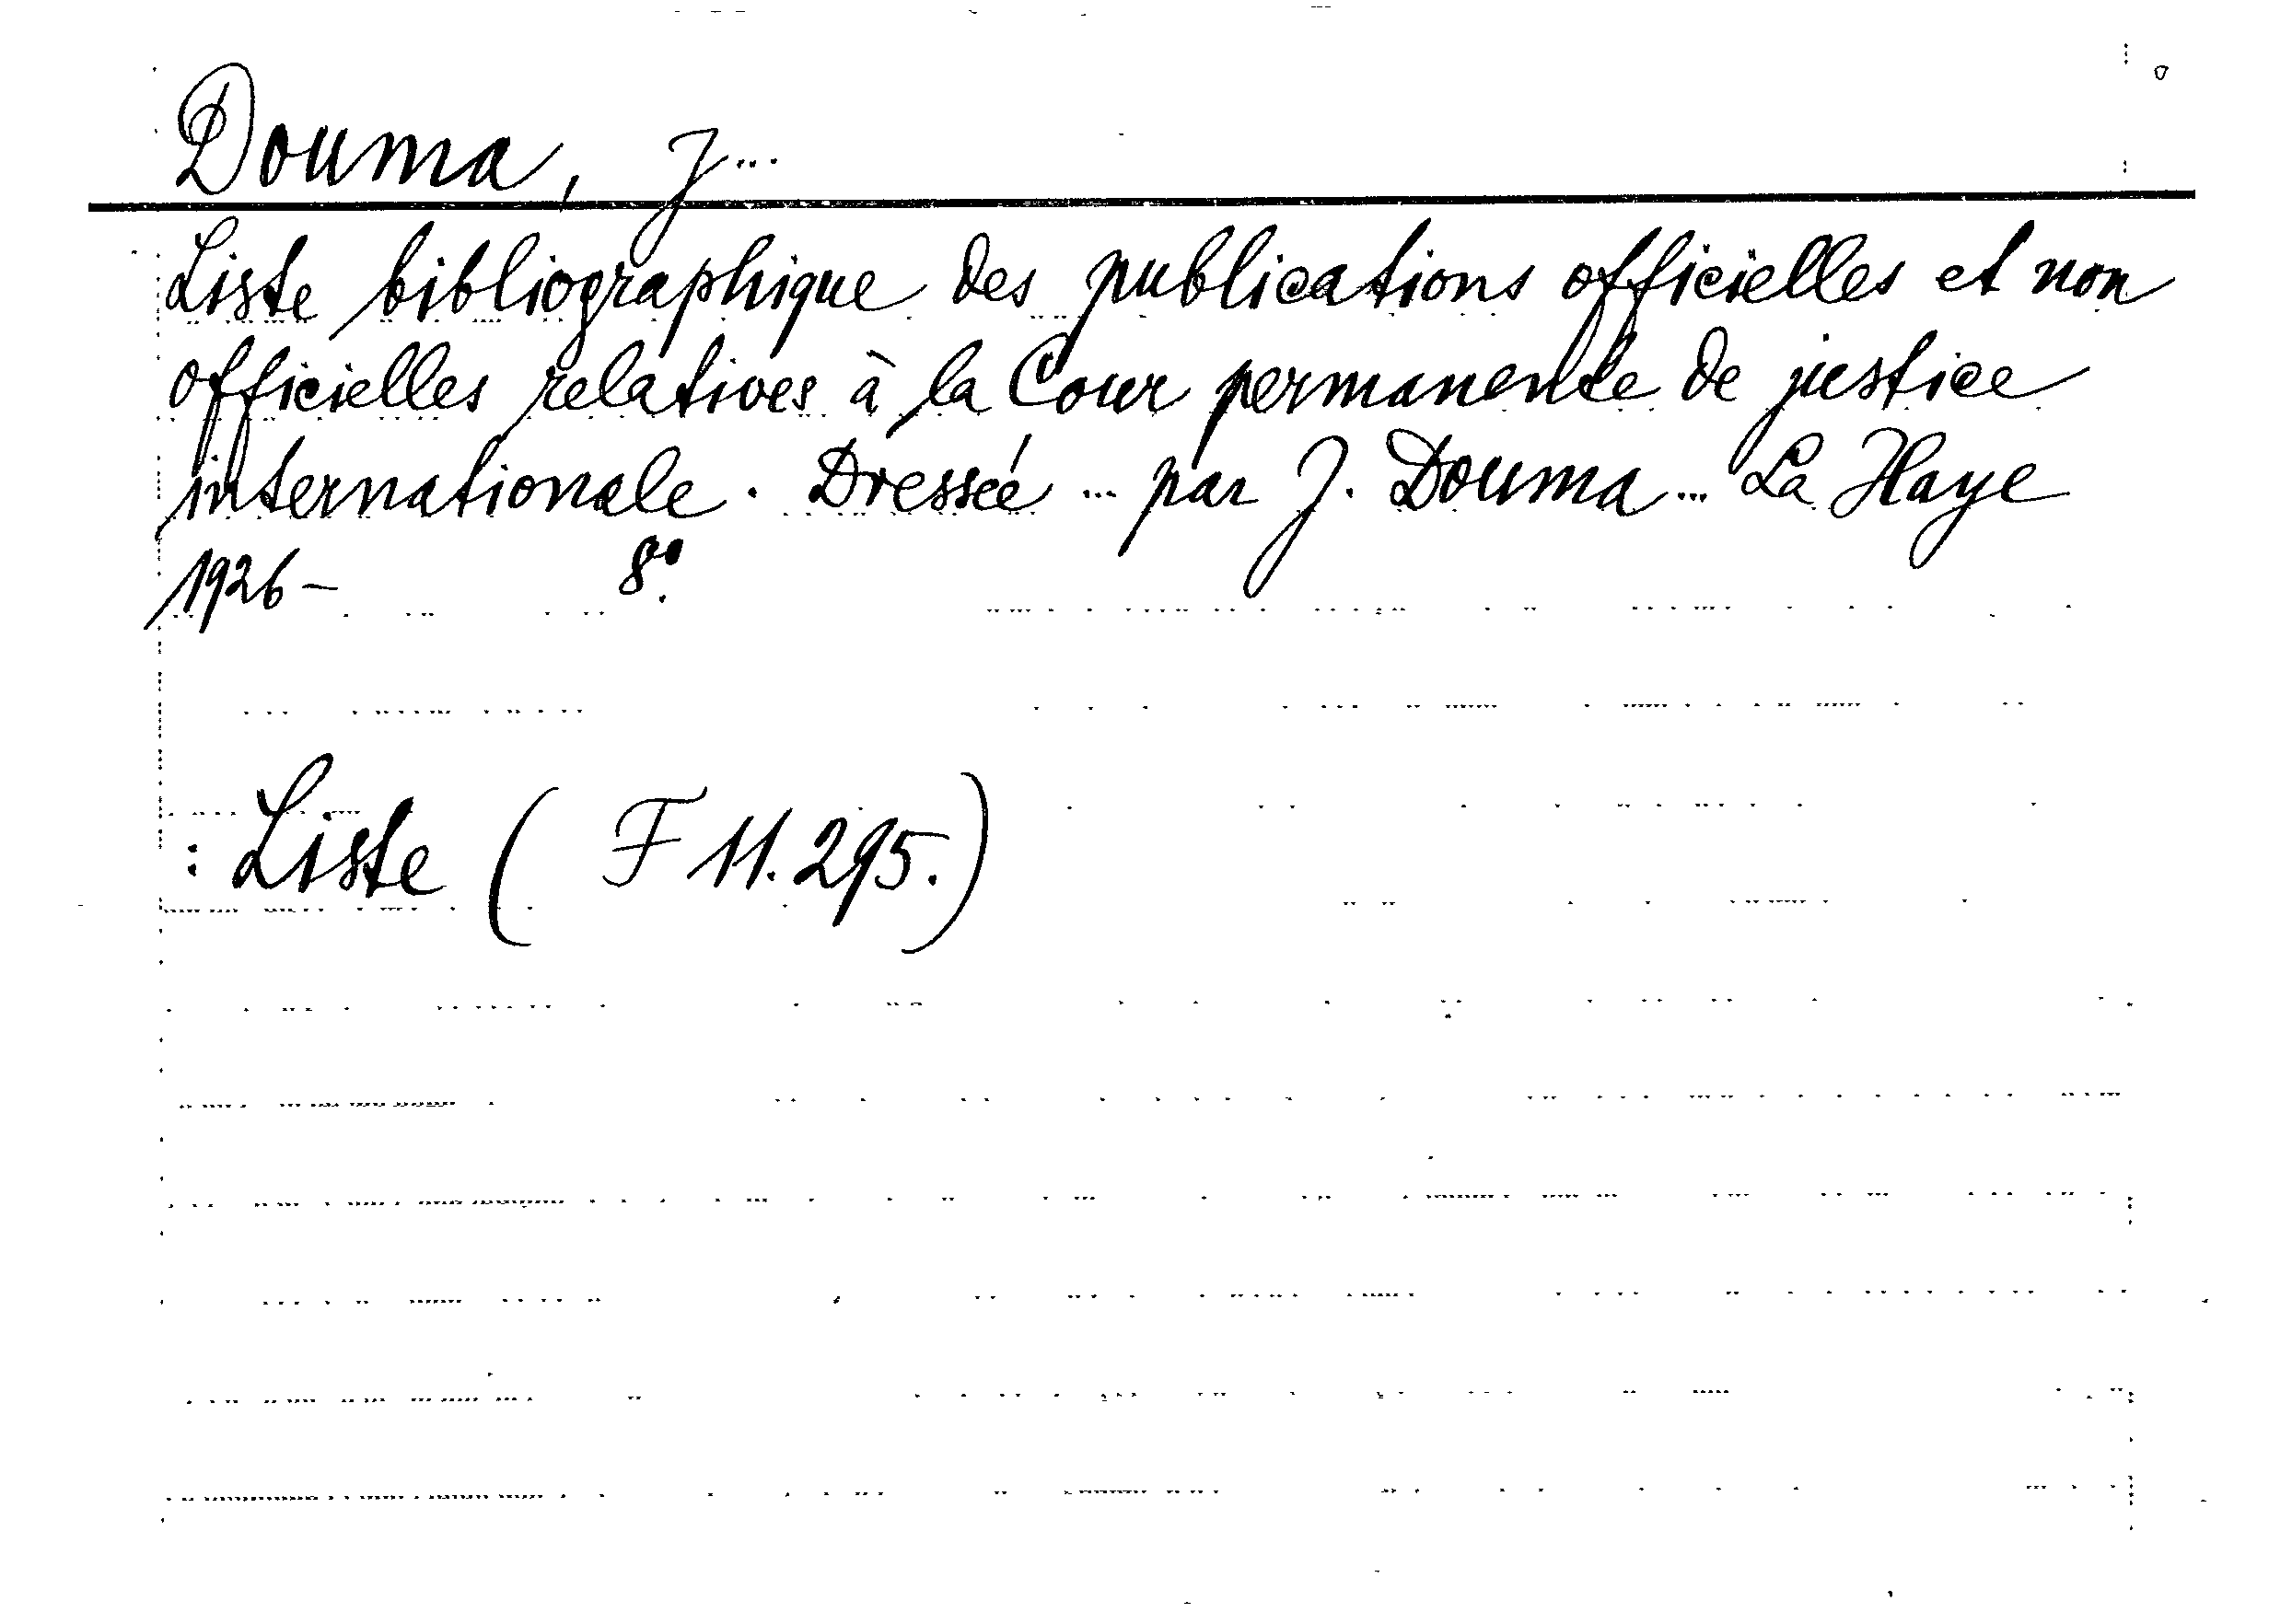 Douma, J...
Liste bibliographique des publications officielles et non
officielles relatives à la Cour permanente de justice
internationale. Dressée ... par J. Douma ... La Haye
1926- 8º.
: Liste ( F 11.295.)